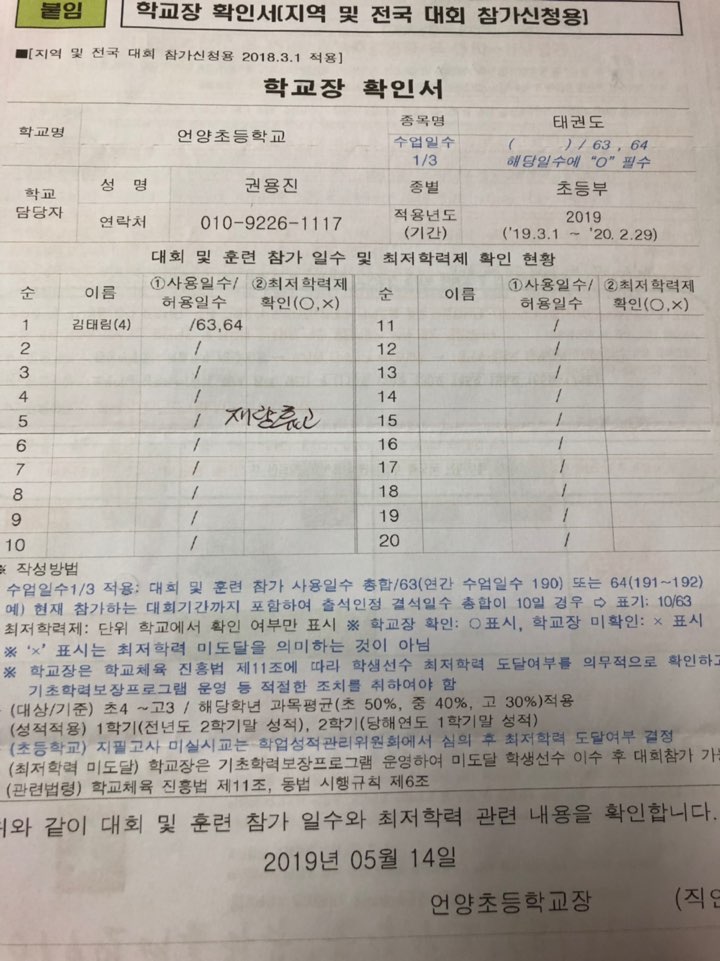 붙임 학교장 확인서[지역 및 전국 대회 참가신청용]
■[지역 및 전국 대회 참가신청용 2018.3.1 적용]
학교장 확인서
학교명 언양초등학교 종목명 태권도
수업일수 1/3 ( ) / 63 , 64
해당일수에 "O" 필수
학교 담당자 성 명 권용진 종별 초등부
연락처 010-9226-1117 적용년도 (기간) 2019
('19.3.1 ~ '20. 2.29)
대회 및 훈련 참가 일수 및 최저학력제 확인 현황
순 이름 ①사용일수/허용일수 ②최저학력제 확인(○,×) 순 이름 ①사용일수/허용일수 ②최저학력제 확인(○,×)
1 김태림(4) /63,64 11 /
2 / 12 /
3 / 13 /
4 / 14 /
5 / 15 /
6 / 16 /
7 / 17 /
8 / 18 /
9 / 19 /
10 / 20 /
※ 작성방법
수업일수1/3 적용; 대회 및 훈련 참가 사용일수 총합/63(연간 수업일수 190) 또는 64(191~192)
예) 현재 참가하는 대회기간까지 포함하여 출석인정 결석일수 총합이 10일 경우 ⇨ 표기: 10/63
최저학력제: 단위 학교에서 확인 여부만 표시 ※ 학교장 확인: ○표시, 학교장 미확인: × 표시
※ '×' 표시는 최저학력 미도달을 의미하는 것이 아님
※ 학교장은 학교체육 진흥법 제11조에 따라 학생선수 최저학력 도달여부를 의무적으로 확인하고
기초학력보장프로그램 운영 등 적절한 조치를 취하여야 함
(대상/기준) 초4 ~고3 / 해당학년 과목평균(초 50%, 중 40%, 고 30%)적용
(성적적용) 1학기(전년도 2학기말 성적), 2학기(당해연도 1학기말 성적)
(초등학교) 지필고사 미실시교는 학업성적관리위원회에서 심의 후 최저학력 도달여부 결정
(최저학력 미도달) 학교장은 기초학력보장프로그램 운영하여 미도달 학생선수 이수 후 대회참가 가능
(관련법령) 학교체육 진흥법 제11조, 동법 시행규칙 제6조
위와 같이 대회 및 훈련 참가 일수와 최저학력 관련 내용을 확인합니다.
2019년 05월 14일
언양초등학교장 (직인